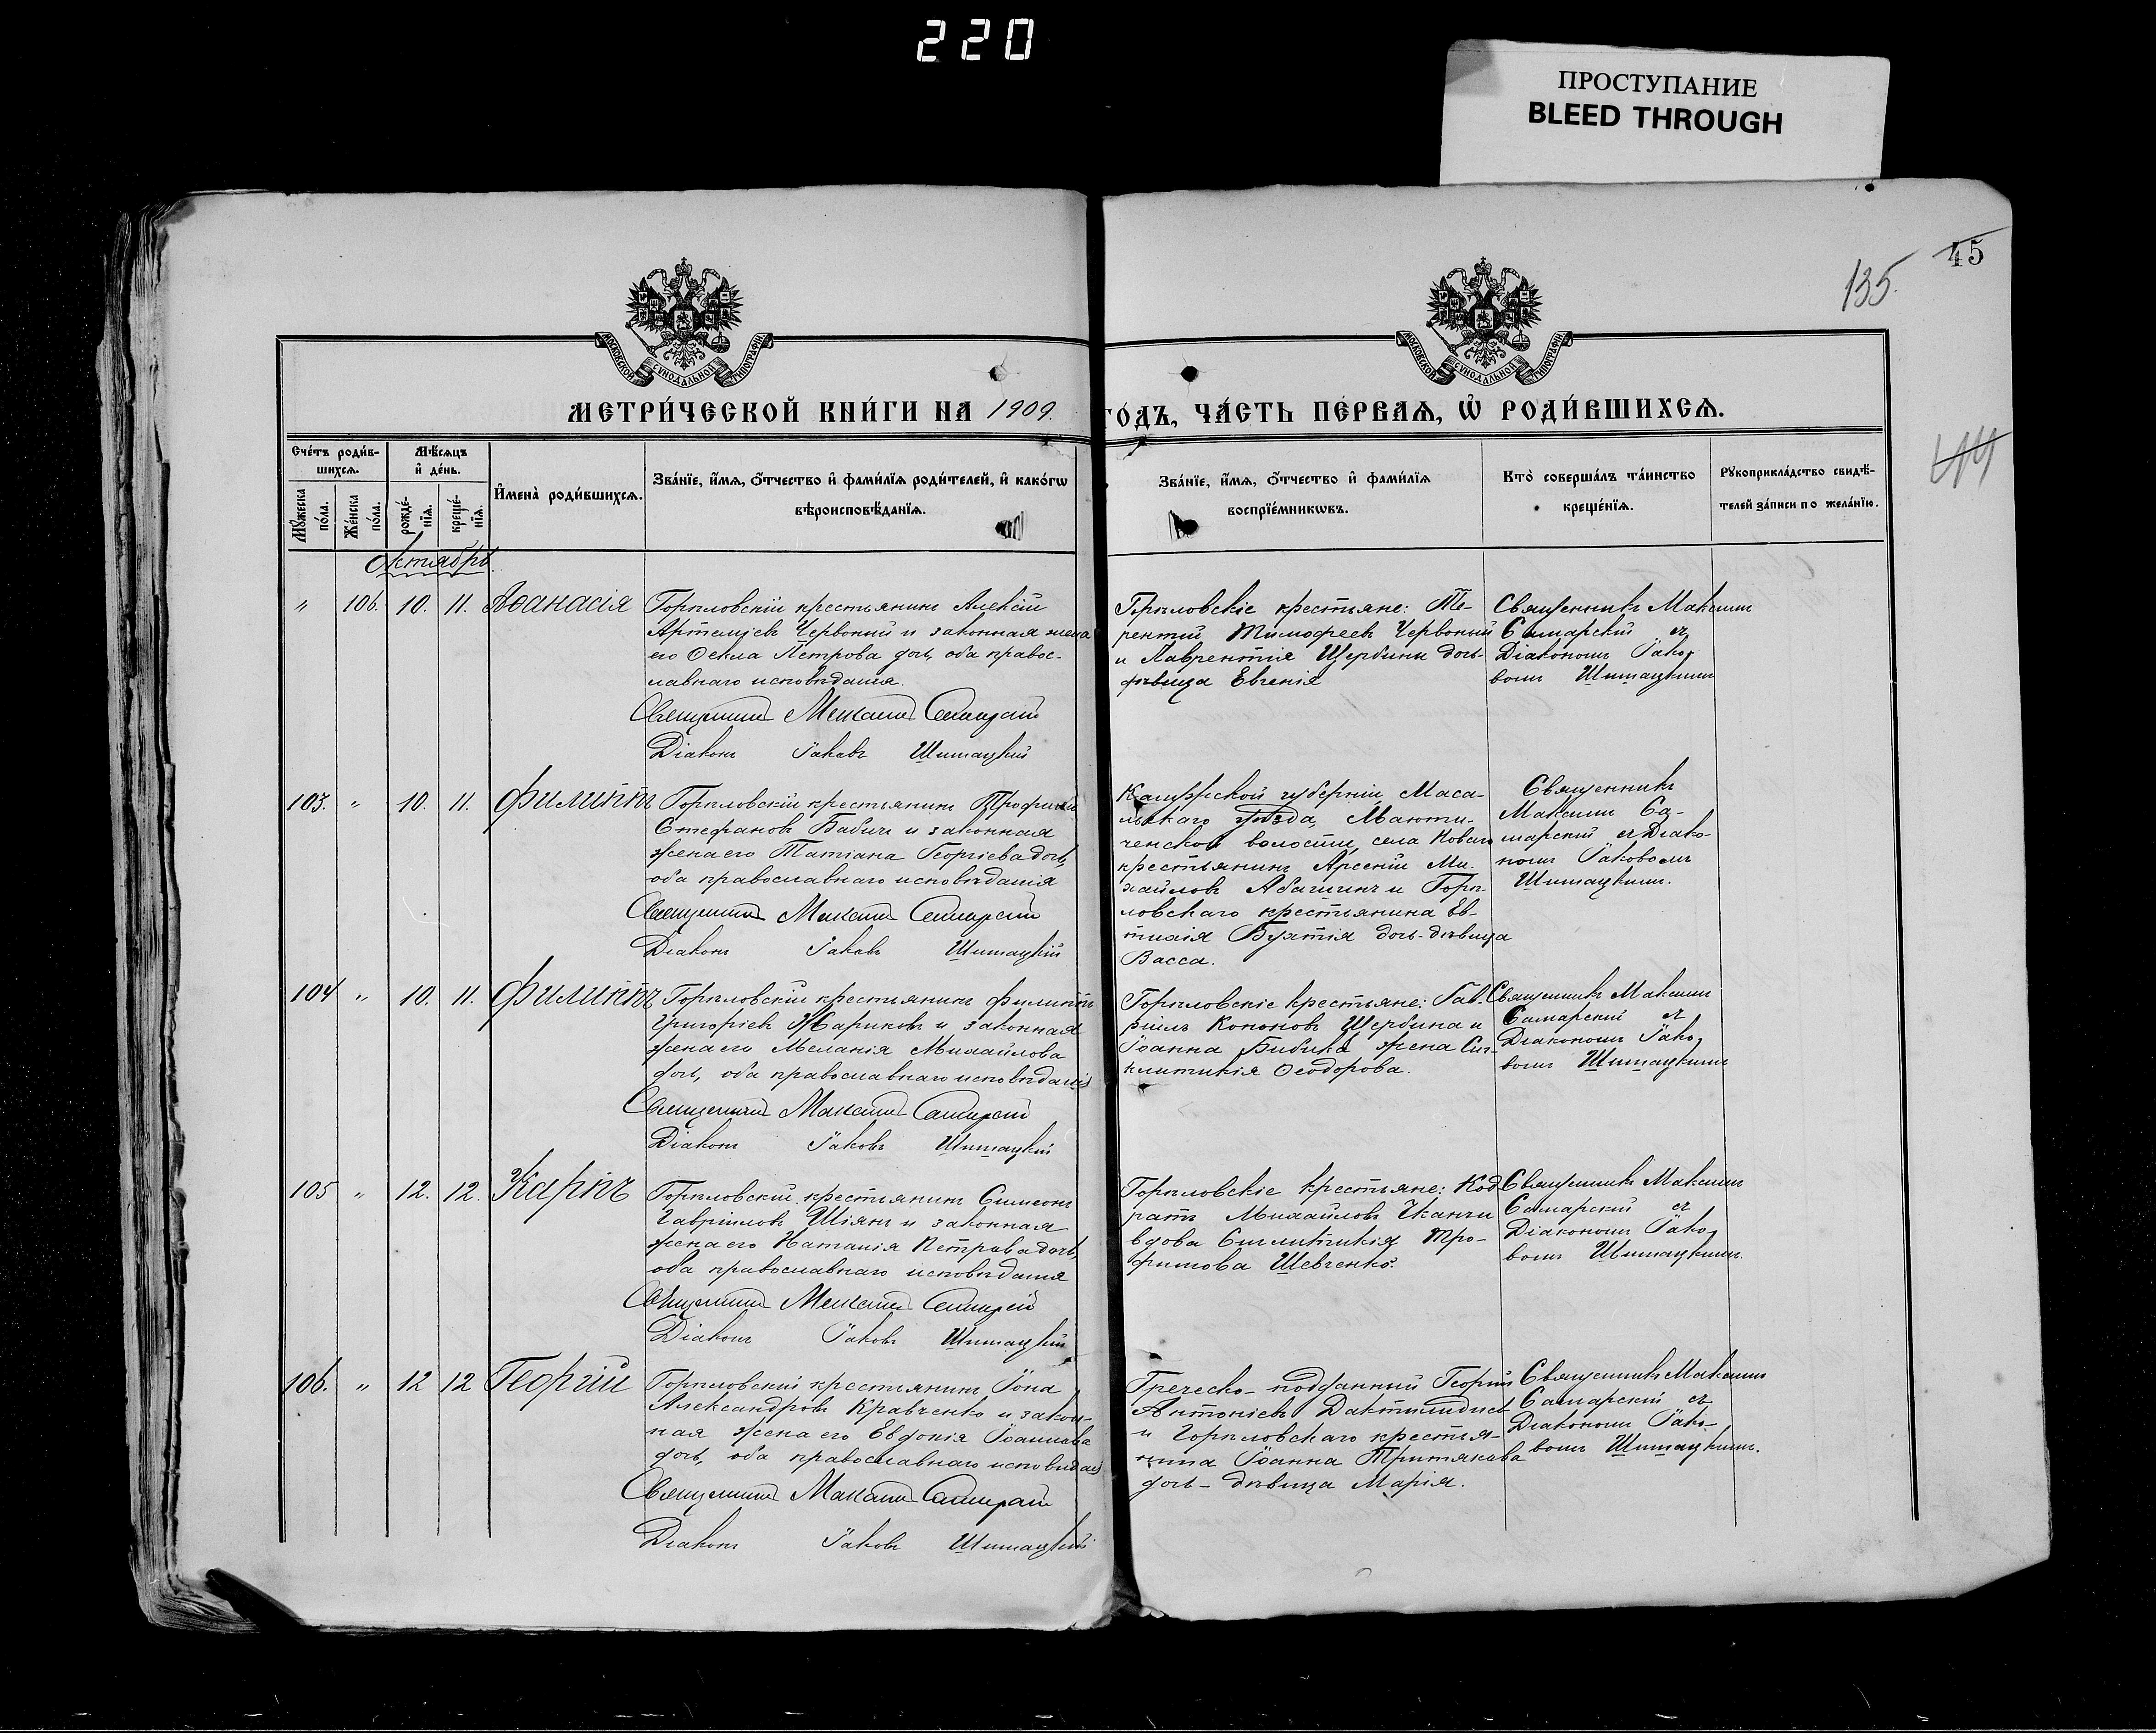 220
ПРОСТУПАНИЕ
BLEED THROUGH
45
135.
44
МОСКОВСКОЙ СУНОДАЛЬНОЙ ТИПОГРАФІИ
МОСКОВСКОЙ СУНОДАЛЬНОЙ ТИПОГРАФІИ
МЕТРИ́ЧЕСКОЙ КНИ́ГИ НА 1909. ГО́ДЪ, ЧА́СТЬ ПЕ́РВАѦ, Ѡ҆ РОДИ́ВШИХСѦ.
Счётъ роди́в-
шихсѧ.
Мꙋжеска
по́ла.
Же́нска
по́ла.
Мѣ́сѧцъ
и҆ де́нь.
рожде́-
нїѧ.
креще́-
нїѧ.
И҆мена̀ роди́вшихсѧ.
Зва́нїе, и҆́мѧ, ѻ҆́тчество и҆ фами́лїѧ роди́телей, и҆ како́гѡ
вѣроисповѣ́данїѧ.
Зва́нїе, и҆́мѧ, ѻ҆́тчество и҆ фами́лїѧ
воспрїе́мникѡвъ.
Кто̀ соверша́лъ та́инство
креще́нїѧ.
Рꙋкоприкла́дство свидѣ́-
телей за́писи по жела́нїю.
Октябрь
" 106. 10. 11. Аѳанасія
Горѣловскій крестьянинъ Алексій
Артемьевъ Червоный и законная жена
его Ѳекла Петрова дочь, оба правос-
лавнаго исповѣданія.
Священникъ Максимъ Самарскій
Діаконъ Іаковъ Шишацкій
Горѣловскіе крестьяне: Те-
рентий Тимофеевъ Червоный
и Лаврентія Щербины дочь-
дѣвица Евгенія
Священникъ Максимъ
Самарский съ
Діакономъ Іако-
вомъ Шишацкимъ
103. " 10. 11. Филиппъ
Горѣловскій крестьянинъ Трофимъ
Стефановъ Бабичъ и законная
жена его Татіана Георгіева дочь,
оба православнаго исповѣданія
Священникъ Максимъ Самарскій
Діаконъ Іаковъ Шишацкій
Калужской губерніи, Маса-
льскаго уѣзда, Мвоти-
ченской волости, села Новаго
крестьянинъ Арсеній Ми-
хайловъ и Горѣ-
ловскаго крестьянина Ев-
тихія дочь-дѣвица
Васса.
Священникъ
Максимъ Са-
марский съ Діако-
номъ Іаковомъ
Шишацкимъ.
104 " 10. 11. Филиппъ
Горѣловскій крестьянинъ Филиппъ
Григоріевъ Жариковъ и законная
жена его Меланія Михайлова
дочь, оба православнаго исповѣданія
Священникъ Максимъ Самарскій
Діаконъ Іаковъ Шишацкій
Горѣловскіе крестьяне: Гав-
ріилъ Кононовъ Щербина и
Іоанна Бибика жена Син-
клитикія Ѳеодорова.
Священникъ Максимъ
Самарский съ
Діакономъ Іако-
вомъ Шишацкимъ
105 " 12. 12. Карпъ
Горѣловский крестьянинъ Симеонъ
Гавріиловъ Шіянъ и законная
жена его Наталія Петрова дочь,
оба православнаго исповѣданія
Священникъ Максимъ Самарскій
Діаконъ Іаковъ Шишацкій
Горѣловскіе крестьяне: Код-
ратъ Михайловъ и
вдова Сиклитикія Тро-
фимова Шевченко.
Священникъ Максимъ
Самарский съ
Діакономъ Іако-
вомъ Шишацкимъ.
106. " 12 12 Георгій
Горѣловский крестьянинъ Іона
Александровъ Кравченко и закон-
ная жена его Евдокія Іоаннова
дочь, оба православнаго исповѣдан
Священникъ Максимъ Самарскій
Діаконъ Іаковъ Шишацкій
Греческо-подданный Георгий
Антоніевъ Дактилидисъ
и Горѣловскаго крестья-
нина Іоанна Притякова
дочь-дѣвица Марія.
Священникъ Максимъ
Самарский съ
Діакономъ Іако-
вомъ Шишацкимъ.